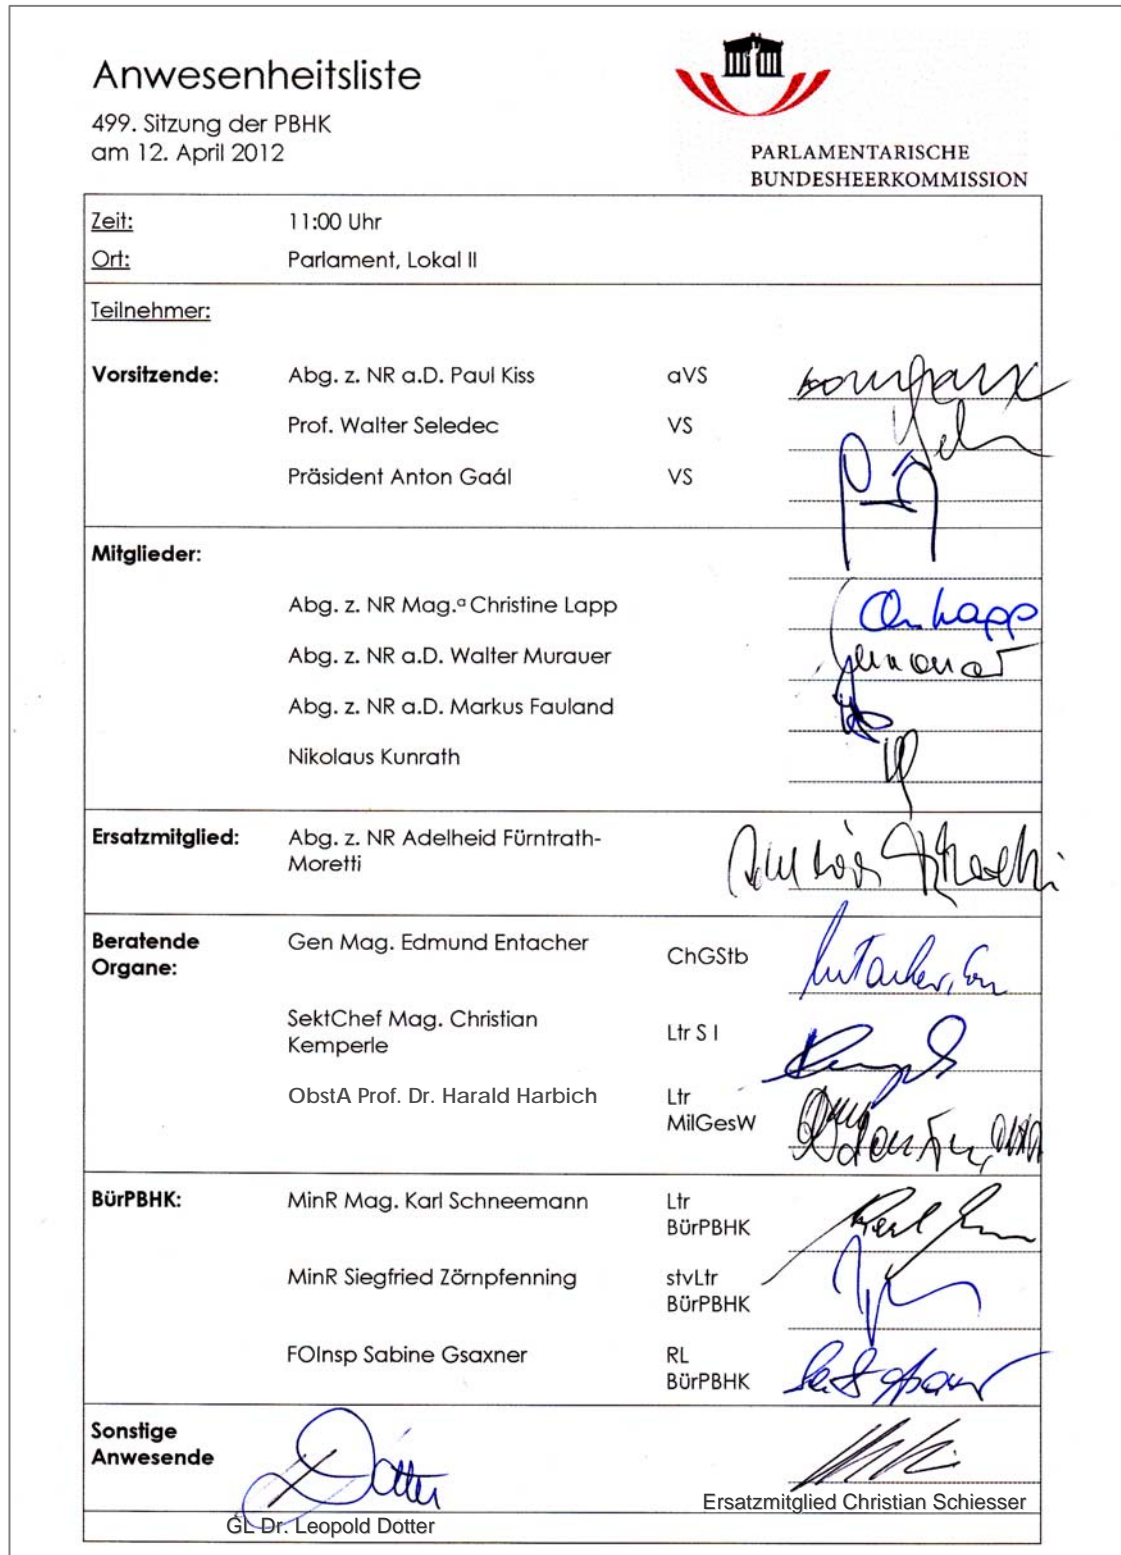 Anwesenheitsliste
499. Sitzung der PBHK
am 12. April 2012
PARLAMENTARISCHE
BUNDESHEERKOMMISSION
Zeit: 11:00 Uhr
Ort: Parlament, Lokal II
Teilnehmer:
Vorsitzende: Abg. z. NR a.D. Paul Kiss aVS
Prof. Walter Seledec VS
Präsident Anton Gaál VS
Mitglieder:
Abg. z. NR Mag.ª Christine Lapp Ch. Lapp
Abg. z. NR a.D. Walter Murauer
Abg. z. NR a.D. Markus Fauland
Nikolaus Kunrath
Ersatzmitglied: Abg. z. NR Adelheid Fürntrath-
Moretti
Beratende Gen Mag. Edmund Entacher ChGStb
Organe:
SektChef Mag. Christian Ltr S I
Kemperle
ObstA Prof. Dr. Harald Harbich Ltr
MilGesW
BürPBHK: MinR Mag. Karl Schneemann Ltr
BürPBHK
MinR Siegfried Zörnpfenning stvLtr
BürPBHK
FOInsp Sabine Gsaxner RL
BürPBHK
Sonstige
Anwesende
Dotter
Ersatzmitglied Christian Schiesser
GL Dr. Leopold Dotter